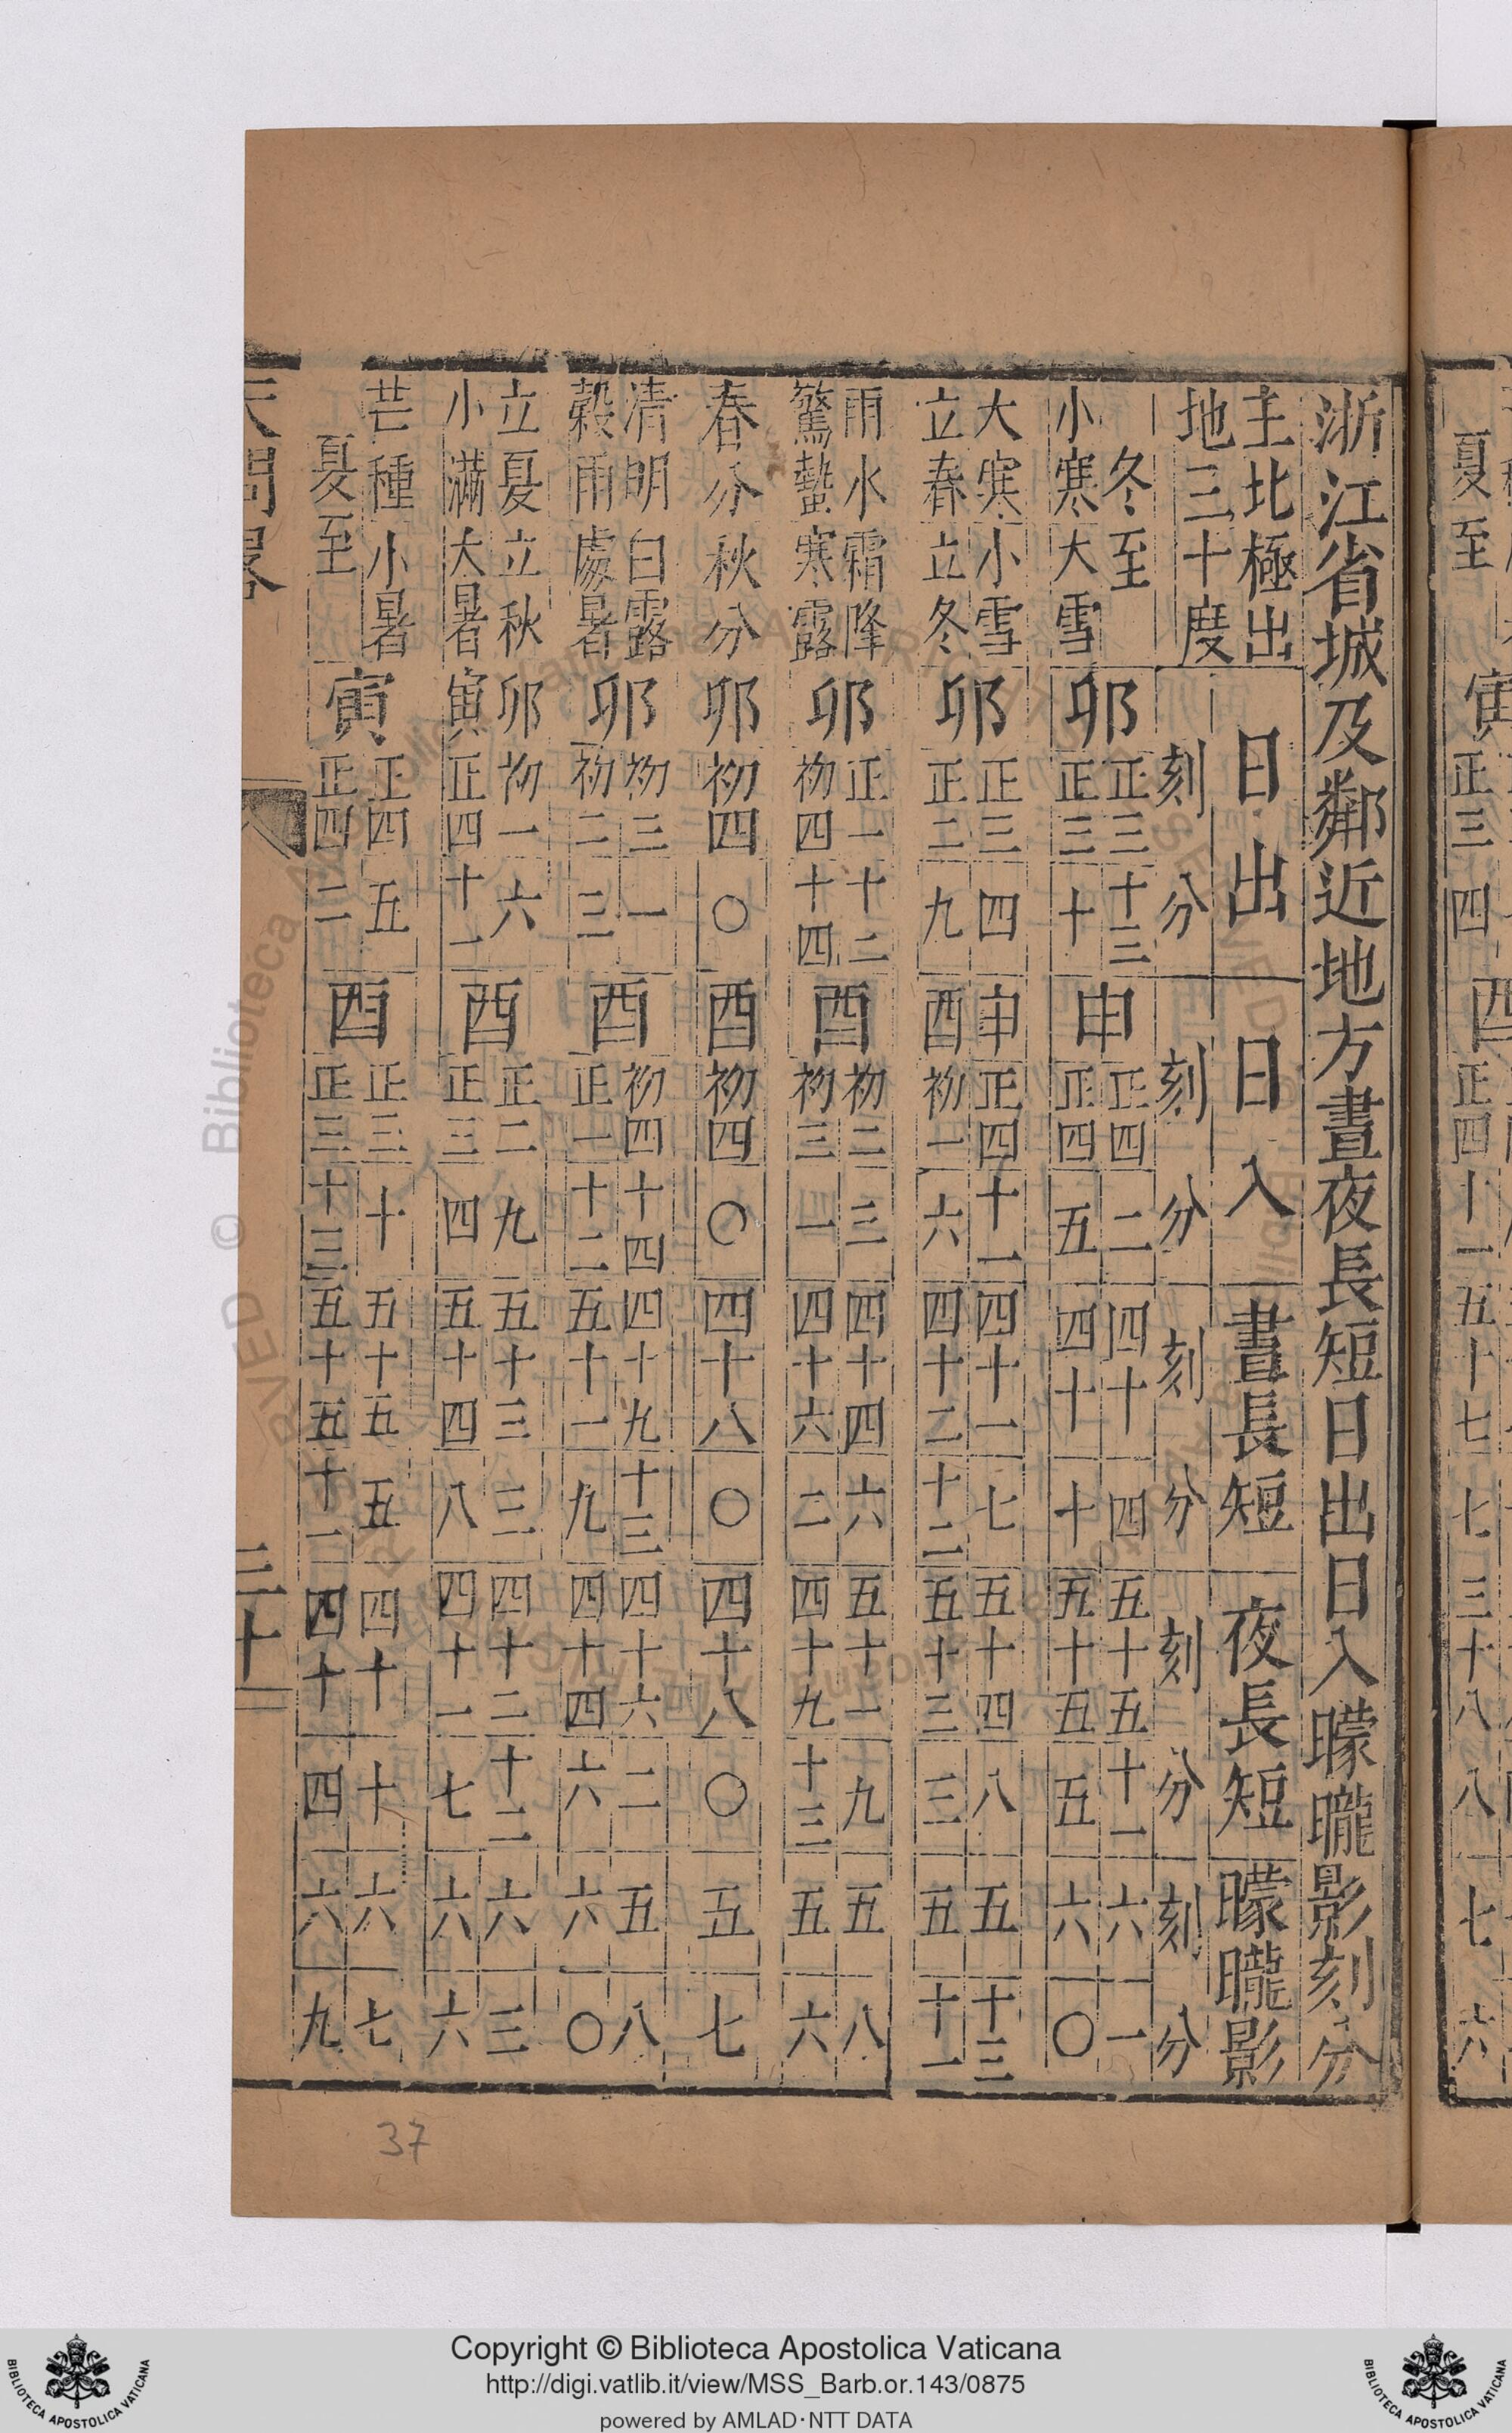 夏至寅正三四酉正四十一五十七七三十八八七六
浙江省城及鄰近地方晝夜長短日出日入曚曨影刻分
主北極出地三十度 日出 日入 晝長短 夜長短 曚曨影
刻 分 刻 分 刻 分 刻 分 刻 分
冬至 卯 正三 十三 申 正四 二 四十 四 五十五 十一 六 一
小寒大雪 正三 十 正四 五 四十 十 五十五 五 六 〇
大寒小雪 卯 正三 四 申 正四 十一 四十一 七 五十四 八 五 十三
立春立冬 正二 九 酉 初一 六 四十二 十二 五十三 三 五 十一
雨水霜降 卯 正一 十二 酉 初二 三 四十四 六 五十一 九 五 八
驚蟄寒露 初四 十四 初三 一 四十六 二 四十九 十三 五 六
春分秋分 卯 初四 〇 酉 初四 〇 四十八 〇 四十八 〇 五 七
清明白露 卯 初三 一 酉 初四 十四 四十九 十三 四十六 二 五 八
穀雨處暑 初二 三 正一 十二 五十一 九 四十四 六 六 〇
立夏立秋 卯 初一 六 酉 正二 九 五十三 三 四十二 十二 六 三
小滿大暑 寅 正四 十一 正三 四 五十四 八 四十一 七 六 六
芒種小暑 寅 正四 五 酉 正三 十 五十五 五 四十 十 六 七
夏至 正四 二 正三 十三 五十五 十一 四十 四 六 九
天問畧 三十
37
Copyright © Biblioteca Apostolica Vaticana
http://digi.vatlib.it/view/MSS_Barb.or.143/0875
powered by AMLAD·NTT DATA
BIBLIOTECA APOSTOLICA VATICANA
BIBLIOTECA APOSTOLICA VATICANA